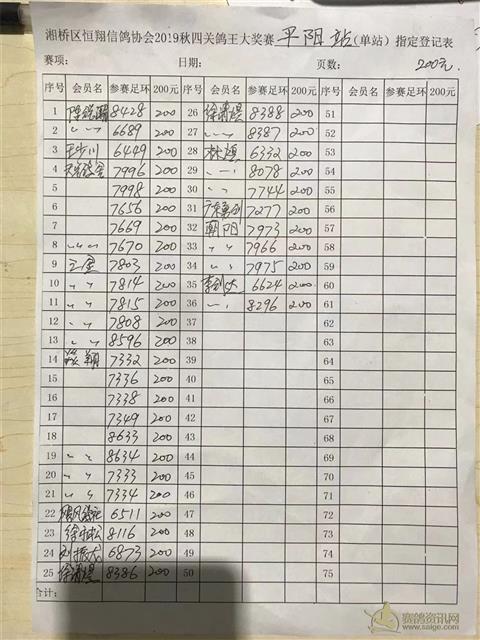 湘桥区恒翔信鸽协会2019秋四关鸽王大奖赛 平阳站 (单站) 指定登记表
赛项: 日期: 页数: 200元
序号 会员名 参赛足环 200元 序号 会员名 参赛足环 200元 序号 会员名 参赛足环 200元
1 8428 200 26 8388 200 51
2 〃 〃 6689 200 27 〃 〃 8387 200 52
3 王少川 6449 200 28 林煌 6332 200 53
4 7996 200 29 〃 〃 8078 200 54
5 7998 200 30 〃 〃 7744 200 55
6 7656 200 31 7277 200 56
7 7669 200 32 朝阳 7973 200 57
8 〃 〃 7670 200 33 〃 〃 7966 200 58
9 7803 200 34 〃 〃 7975 200 59
10 〃 〃 7814 200 35 6624 200 60
11 〃 〃 7815 200 36 〃 8296 200 61
12 〃 〃 7808 200 37 62
13 〃 〃 8596 200 38 63
14 7332 200 39 64
15 7336 200 40 65
16 7338 200 41 66
17 7349 200 42 67
18 8633 200 43 68
19 〃 〃 8634 200 44 69
20 〃 〃 7333 200 45 70
21 〃 〃 7334 200 46 71
22 6511 200 47 72
23 8116 200 48 73
24 刘振龙 6873 200 49 74
25 8386 200 50 75
合计:
赛鸽资讯网
www.saige.com